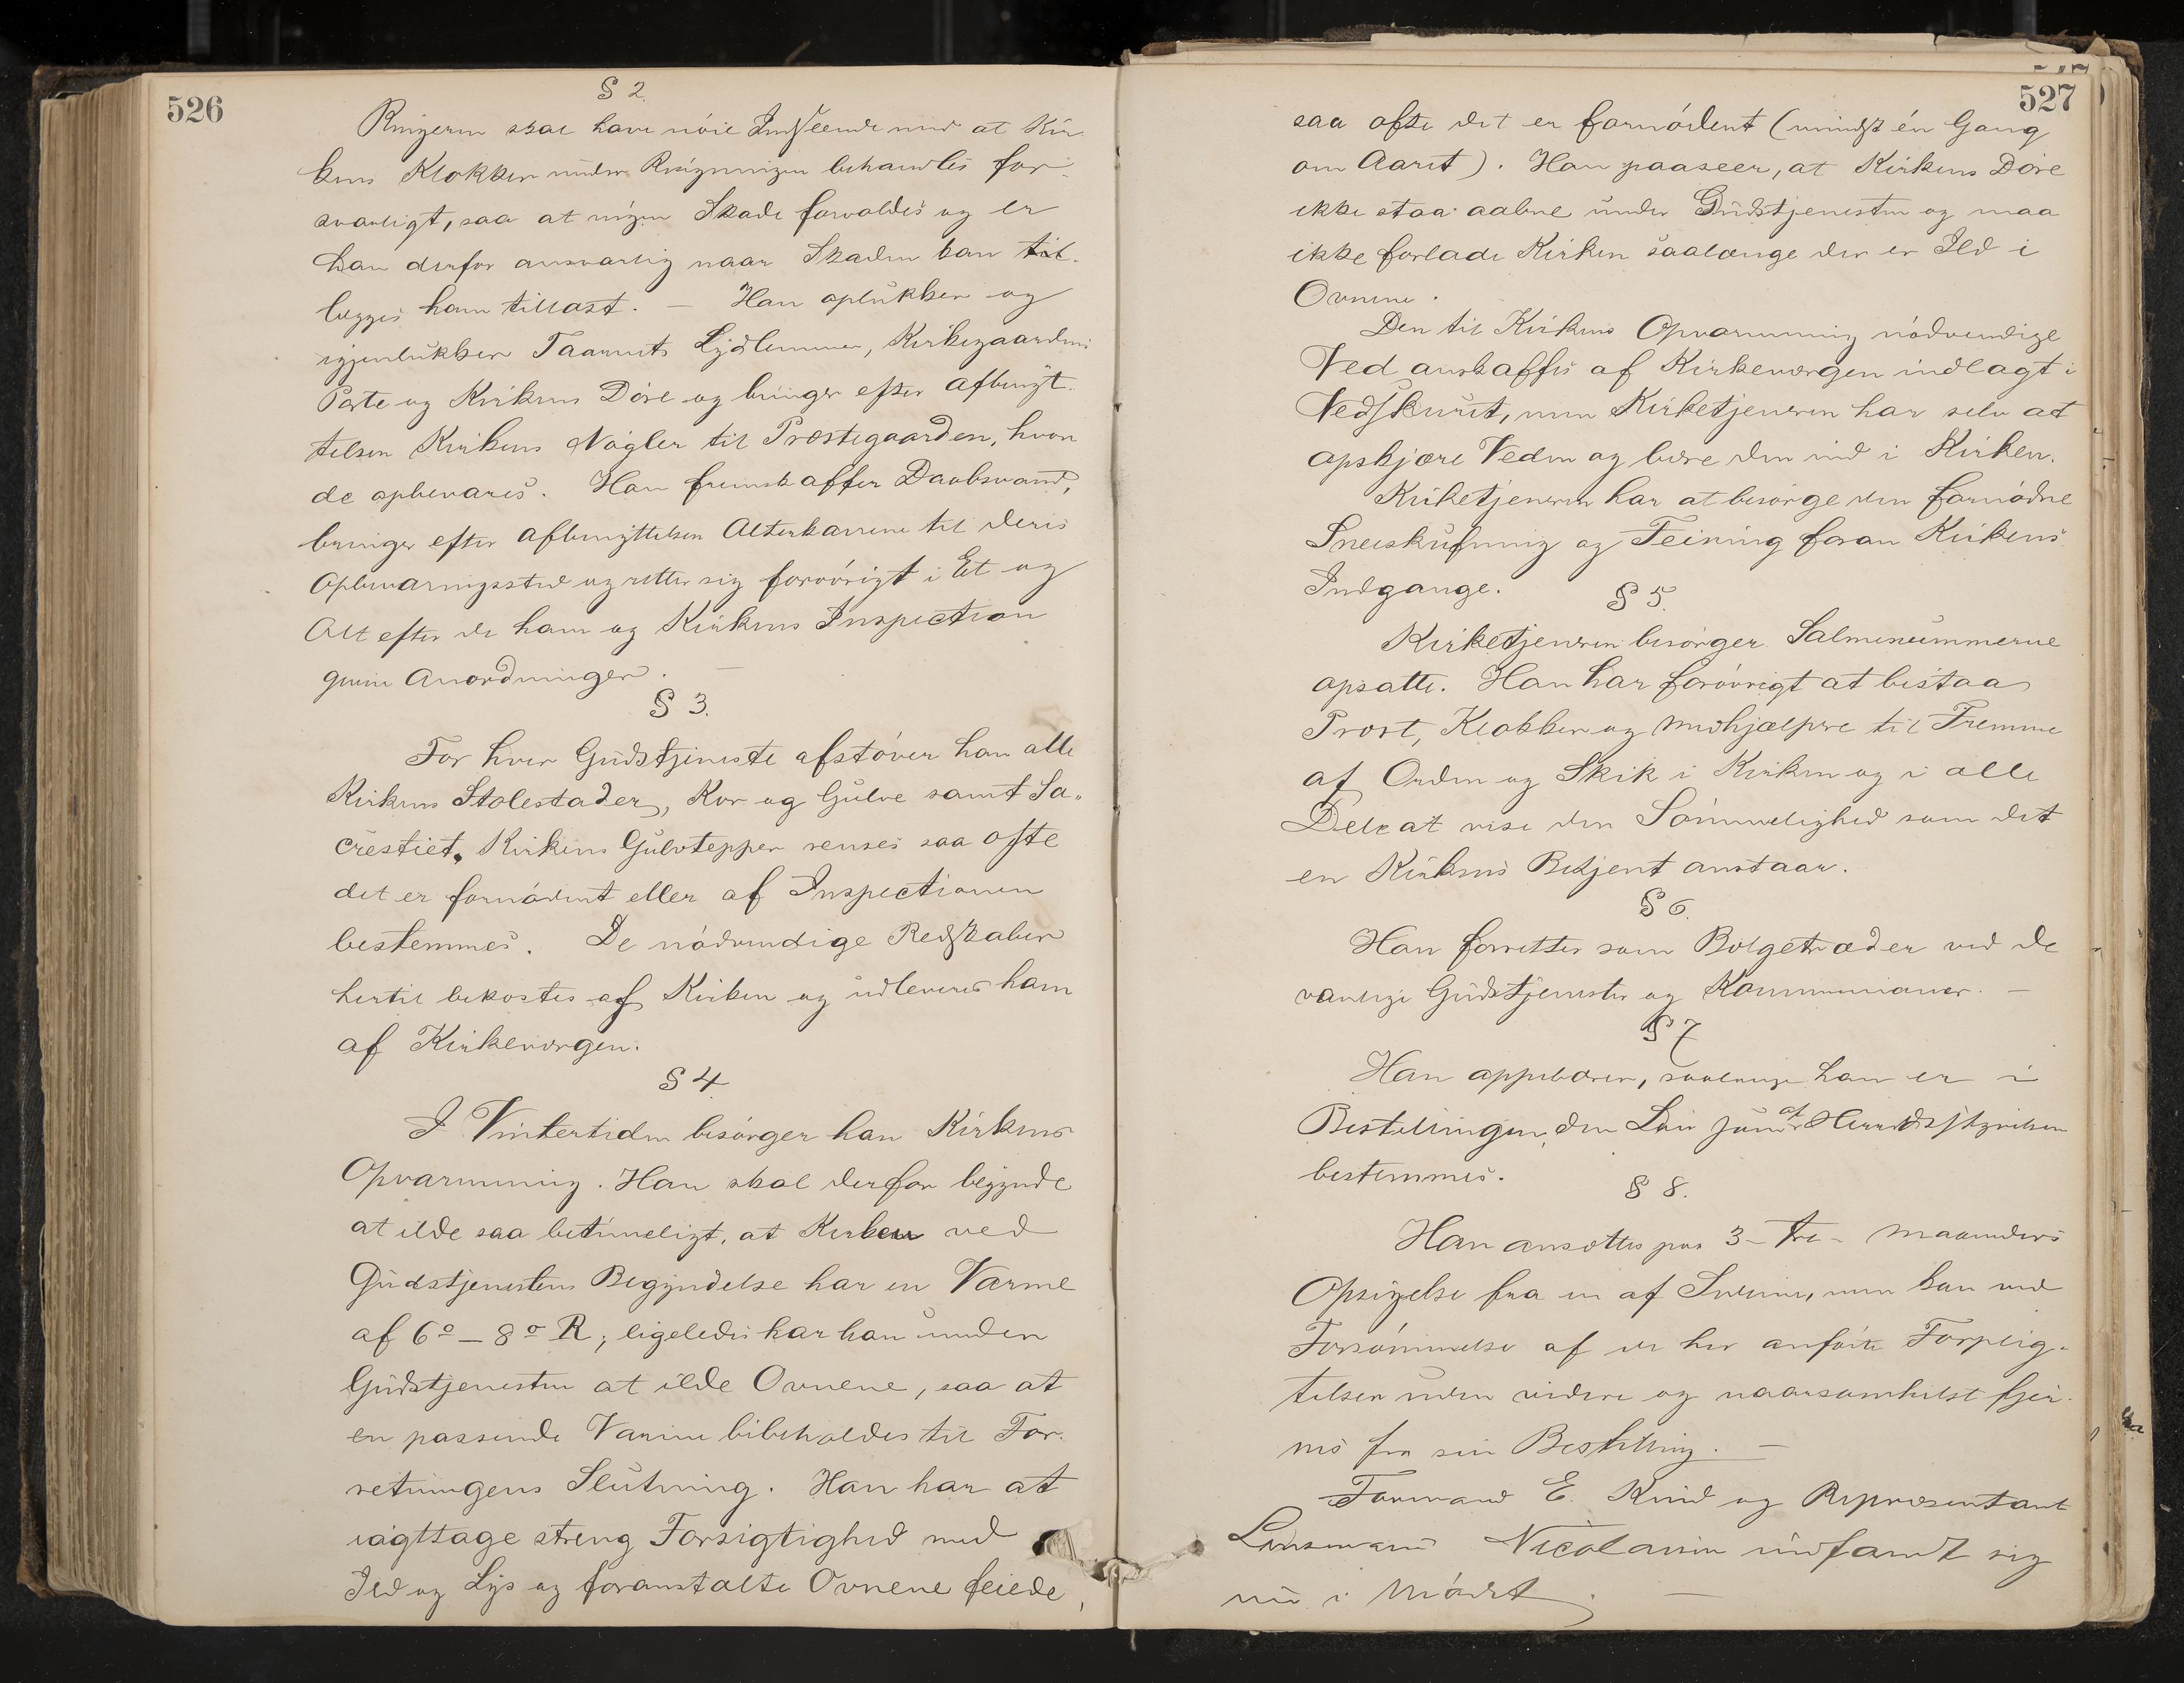 526
§ 2.
Ringeren skal have nöie Indseende med at Kir-
kens Klokker under Ringningen behandles for-
svarligt, saa at ingen Skade forvoldes og er
han derfor ansvarlig naar Skaden kan til-
lægges ham tillast. – Han oplukker og
igjenlukker Taarnets Lydlemmer, Kirkegaardens
Porte og Kirkens Döre og bringer efter Afbenyt-
telsen Kirkens Nögler til Præstegaarden, hvor
de opbevares. Han fremskaffer Daabsvand,
bringer efter Afbenyttelsen Alterkarrene til deres
Opbevaringssted og retter sig forövrigt i Et og
Alt efter de ham og Kirkens Inspection
givne Anordninger. –
§ 3.
For hver Gudstjeneste afstöver han alle
Kirkens Stolestader, Kor og Gulve samt Sa-
crestiet. Kirkens Gulvtepper renses saa ofte
det er fornödent eller af Inspectionen
bestemmes. De nödvendige Redskaber
hertil bekostes af Kirken og udleveres ham
af Kirkeværgen.
§ 4.
I Vintertiden besörger han Kirkens
Opvarmning. Han skal derfor begynde
at ilde saa betimeligt, at Kirken ved
Gudstjenestens Begyndelse har en Varme
af 6° – 8° R; ligeledes har han under
Gudstjenesten at ilde Ovnene, saa at
en passende Varme bibeholdes til For-
retningens Slutning. Han har at
iagttage streng Forsigtighed med
Ild og Lys og foranstalte Ovnene feiede,
527
saa ofte det er fornödent (mindst én Gang
om Aaret). Han paaseer, at Kirkens Döre
ikke staa aabne under Gudstjenesten og maa
ikke forlade Kirken saalænge der er Ild i
Ovnene.
Den til Kirkens Opvarmning nödvendige
Ved anskaffes af Kirkeværgen indlagt i
Vedskuret, men Kirketjeneren har selv at
opskjære Veden og bære den ind i Kirken.
Kirketjeneren har at besörge den fornödne
Sneeskufning og Feining foran Kirkens
Indgange.
§ 5.
Kirketjeneren besörger Salmenummerne
opsatte. Han har forövrigt at bistaa
Præst, Klokker og Medhjælpere til Fremme
af Orden og Skik i Kirken og i alle
Dele at vise den Sömmelighed som det
en Kirkens Betjent anstaar.
§ 6.
Han forretter som Bælgetræder ved de
vanlige Gudstjenester og Kommunioner. –
§ 7
Han oppebærer, saalænge han er i
Bestillingen, den Lön som af Herredsstyrelsen
bestemmes.
§ 8.
Han ansættes paa 3 – tre – Maaneders
Opsigelse fra en af Siderne, men kan ved
Forsömmelse af de her anförte Forplig-
telser uden videre og naarsomhelst fjer-
nes fra sin Bestilling. –
Formand E. Kind og Repræsentant
Lensmand Nicolaisen indfandt sig
nu i Mödet. –